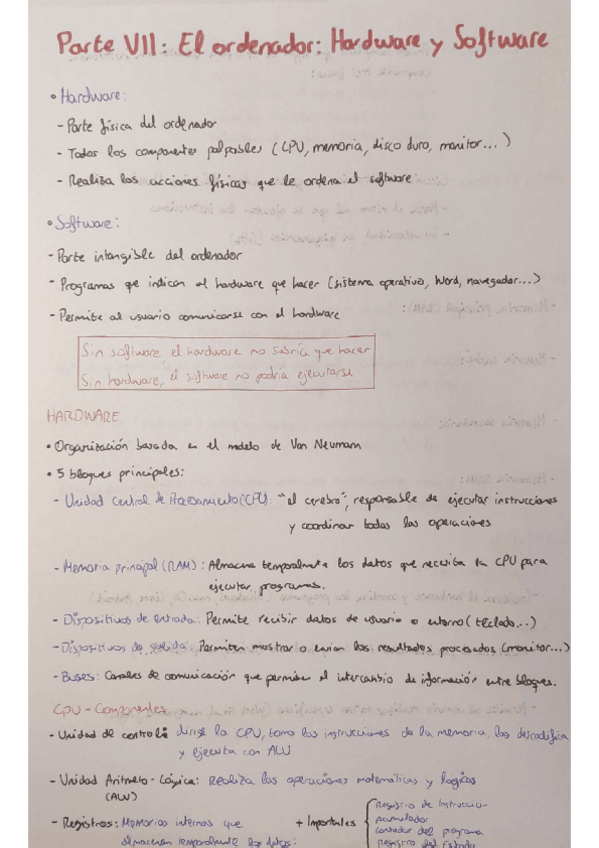 Parte VII: El ordenador: Hardware y Software
• Hardware:
- Parte física del ordenador
- Todos los componentes palpables (CPU, memoria, disco duro, monitor...)
- Realiza las acciones físicas que le ordena el software
• Software:
- Parte intangible del ordenador
- Programas que indican al hardware que hacer (sistema operativo, Word, navegador...)
- Permite al usuario comunicarse con el hardware
Sin software, el hardware no sabría que hacer
Sin hardware, el software no podría ejecutarse
HARDWARE
• Organización basada en el modelo de Von Neumann
• 5 bloques principales:
- Unidad Central de Procesamiento (CPU): "el cerebro", responsable de ejecutar instrucciones
y coordinar todas las operaciones
- Memoria principal (RAM): Almacena temporalmente los datos que necesita la CPU para
ejecutar programas.
- Dispositivos de entrada: Permite recibir datos de usuario o entorno (teclado...)
- Dispositivos de salida: Permiten mostrar o envian los resultados procesados (monitor...)
- Buses: Canales de comunicación que permiten el intercambio de información entre bloques.
CPU - Componentes
- Unidad de control: dirige la CPU, toma las instrucciones de la memoria, las descodifica
y ejecuta con ALU
- Unidad Aritmeto-Lógica: Realiza las operaciones matemáticas y logicas
(ALU)
- Registros: Memorias internas que
almacenan temporalmente los datos:
+ Importantes
Registro de Instrucción
acumulador
contador del programa
Registro del Estado